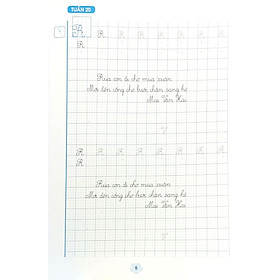 TUẦN 20
R R R R R R R R
R
Rùa con đi chợ mùa xuân
Mới đến cổng chợ bước chân sang hè
Mai Văn Hai
R R R R R R R R
R
Rùa con đi chợ mùa xuân
Mới đến cổng chợ bước chân sang hè
Mai Văn Hai